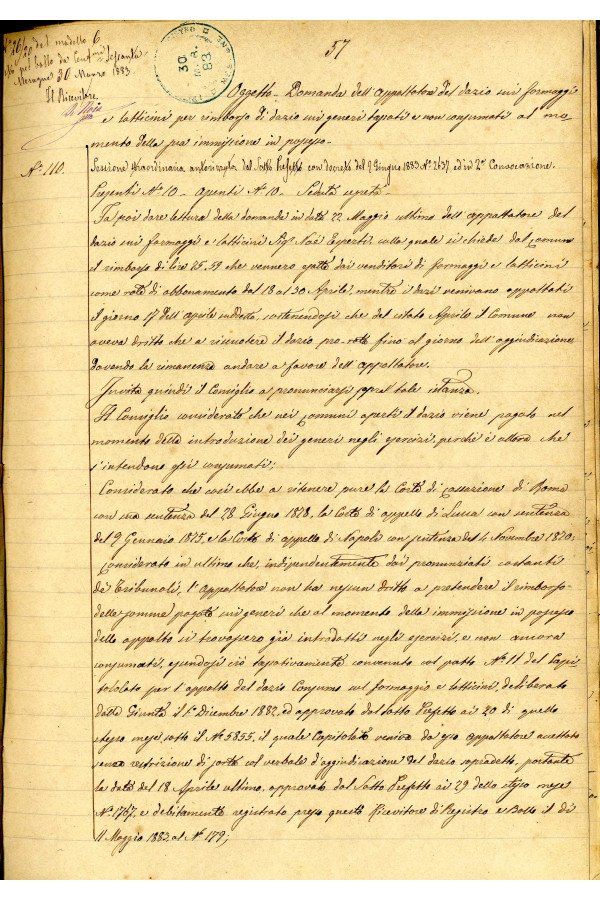 57
N° 16/20 del modello 6
pel bollo da Cent.mi Sessanta
30 Marzo 1883
Il Ricevitore
30
83
Oggetto - Domanda dell'appaltatore del dazio sui formaggi
e latticini per rimborso di dazio sui generi tassati e non consumati al mo-
mento della sua immissione in possesso.
N° 110.
Sessione straordinaria autorizzata dal Sotto Prefetto con decreto del 9 Giugno 1883 N° 2637 ed in 2a Convocazione.
Presenti N° 10 - Assenti N° 10 - Seduta segreta -
Fa poi dare lettura della domanda in data 22 Maggio ultimo dell'appaltatore del
dazio sui formaggi e latticini Sig. Noé colla quale si chiede dal Comune
il rimborso di lire 25.59 che vennero dai venditori di formaggi e latticini
come rate di abbonamento dal 18 al 30 Aprile, mentre i dazi venivano appaltati
il giorno 17 dell'aprile suddetto sostenendosi che del citato Aprile il Comune non
aveva dritto che a riscuotere il dazio pro-rata fino al giorno dell'aggiudicazione
dovendo la rimanenza andare a favore dell'appaltatore.
Invita quindi il Consiglio a pronunciarsi sopra tale istanza.
Il Consiglio considerato che nei Comuni aperti il dazio viene pagato nel
momento della introduzione dei generi negli esercizi, perché è allora che
s'intendono già consumati;
Considerato che così ebbe a ritenere pure la Corte di Cassazione di Roma
con sua sentenza del 28 Giugno 1878, la Corte di appello di Lucca con sentenza
del 9 Gennaio 1875, e la Corte di appello di Napoli con sentenza del 4 Novembre 1870;
Considerato in ultimo che, indipendentemente dai pronunziati costanti
de' Tribunali, l'appaltatore non ha nessun dritto a pretendere il rimborso
delle somme pagate sui generi che al momento della immissione in possesso
dello appalto si trovassero già introdotti negli esercizi, e non ancora
consumati, essendosi ciò tassativamente convenuto col patto N° 11 del Capi-
tolato per l'appalto del dazio Consumo sul formaggio e latticini, deliberato
dalla Giunta il 1° Dicembre 1882, ed approvato dal Sotto Prefetto ai 20 di quello
stesso mese, sotto il N° 5855, il quale Capitolato veniva da esso appaltatore accettato
senza restrizione di sorta col verbale d'aggiudicazione del dazio sopradetto, portante
la data del 18 Aprile ultimo, approvato dal Sotto Prefetto ai 29 dello stesso mese
N° 1767, e debitamente registrato presso questo Ricevitore di Registro e Bollo il dì
11 Maggio 1883 al N° 179;